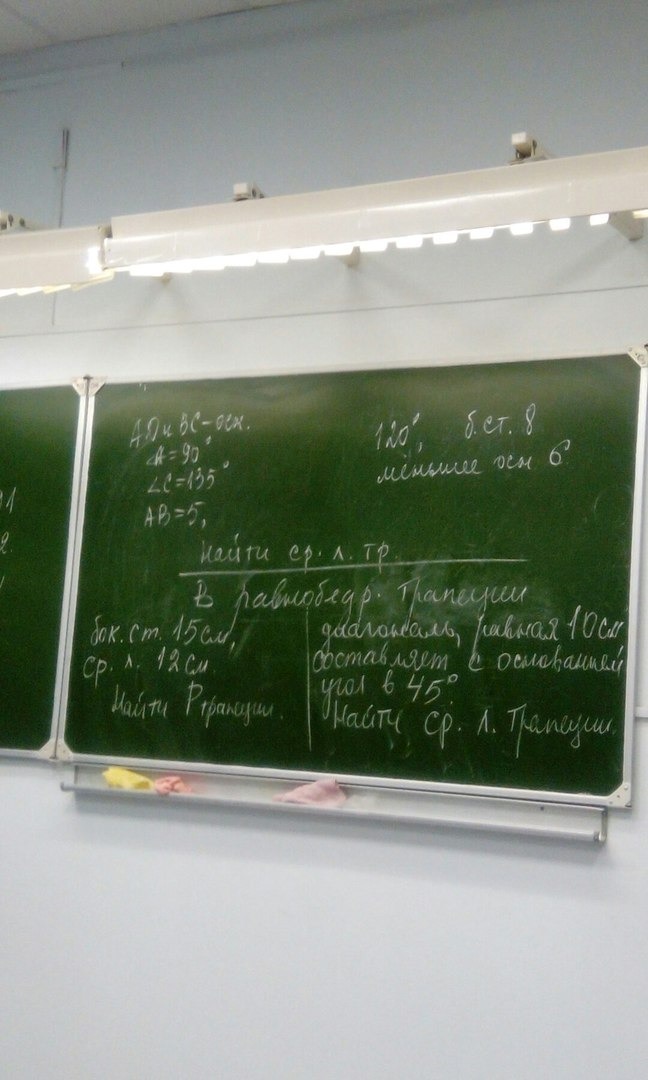 АД и ВС-осн.
∠А=90°
∠С=135°
АВ=5,
120°, б.ст. 8
меньшее осн 6
Найти ср. л. тр.
В равнобедр. трапеции
бок. ст. 15 см,
ср. л. 12 см.
Найти Ртрапеции.
диагональ, равная 10 см
составляет с основанием
угол в 45°
Найти ср. л. трапеции.